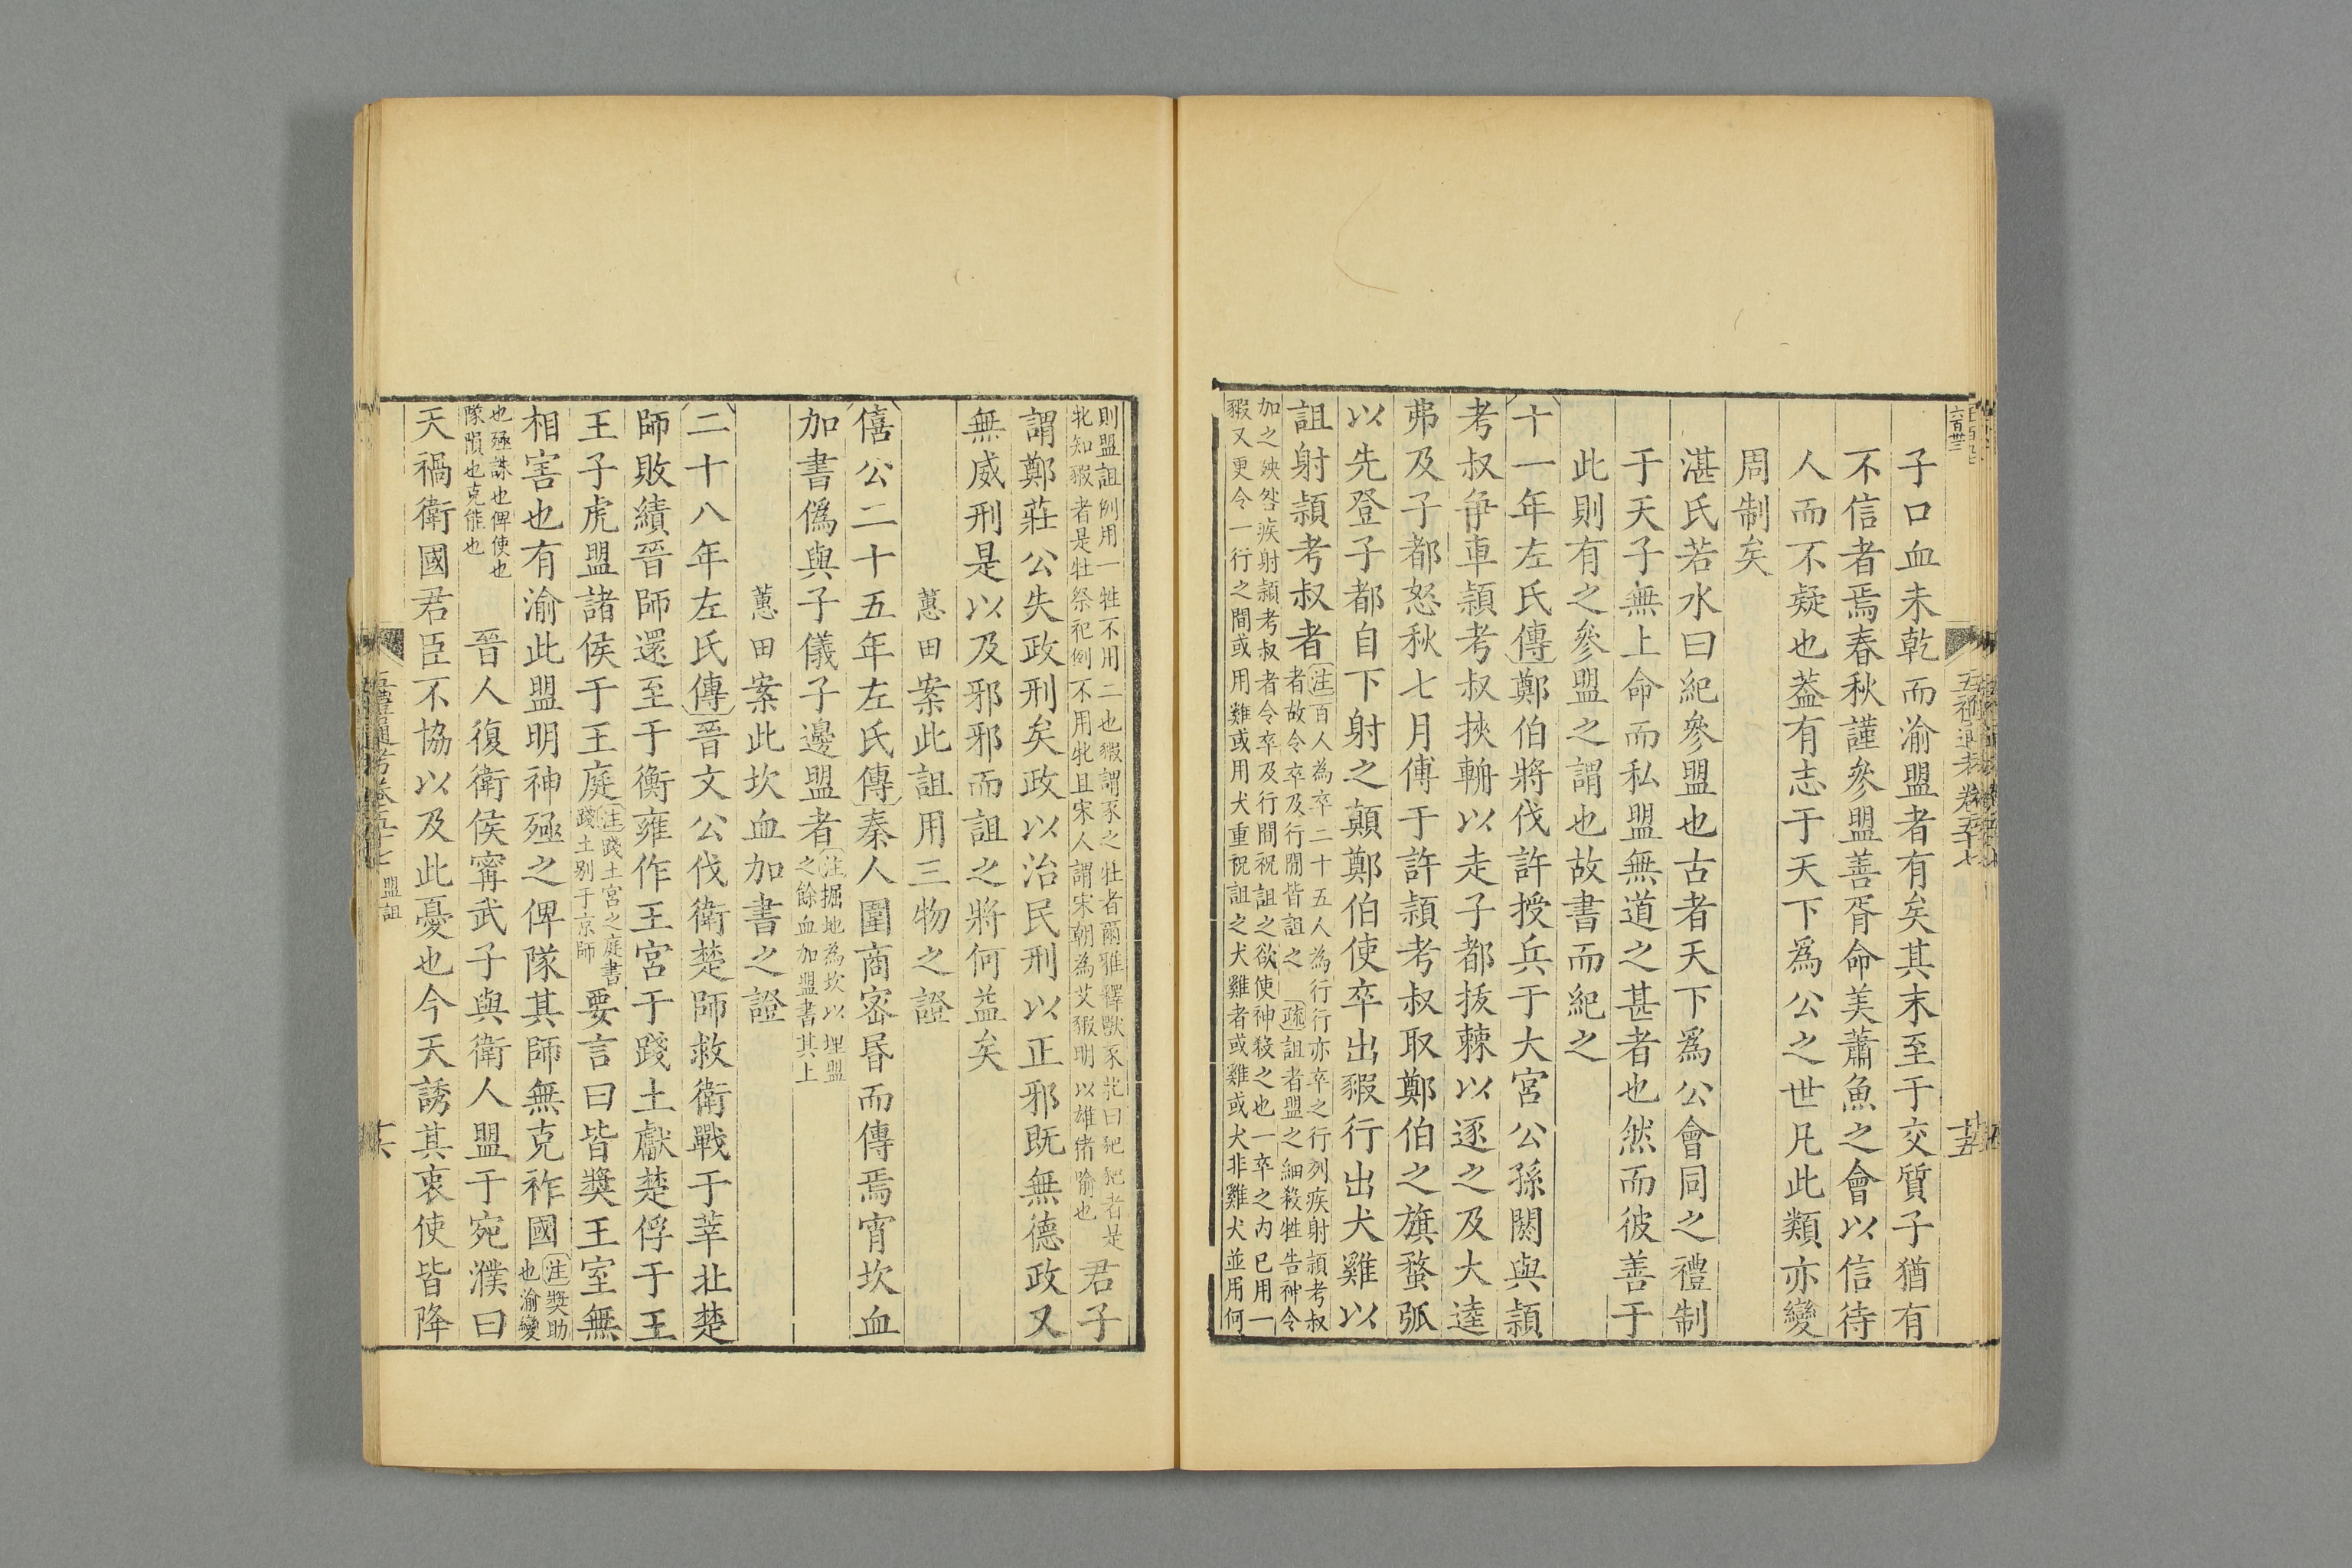 子口血未乾而渝盟者有矣其末至于交質子猶有
不信者焉春秋謹參盟善胥命美蕭魚之會以信待
人而不疑也葢有志于天下爲公之世凡此類亦變
周制矣
湛氏若水曰紀參盟也古者天下爲公會同之禮制
于天子無上命而私盟無道之甚者也然而彼善于
此則有之參盟之謂也故書而紀之
十一年左氏傳鄭伯將伐許授兵于大宮公孫閼與潁
考叔爭車潁考叔挾輈以走子都拔棘以逐之及大逵
弗及子都怒秋七月傅于許潁考叔取鄭伯之旗蝥弧
以先登子都自下射之顛鄭伯使卒出豭行出犬雞以
詛射潁考叔者注百人為卒二十五人為行行亦卒之行列疾射潁考叔
者故令卒及行閒皆詛之 疏詛者盟之細殺牲告神令
加之殃咎疾射潁考叔者令卒及行間祝詛之欲使神殺之也一卒之內已用一
豭又更令一行之間或用雞或用犬重祝詛之犬雞者或雞或犬非雞犬並用何
則盟詛例用一牲不用二也豭謂豕之牡者爾雅釋獸豕牝曰豝豝者是
牝知豭者是牡祭祀例不用牝且宋人謂宋朝為艾豭明以雄猪喻也
君子
謂鄭莊公失政刑矣政以治民刑以正邪既無德政又
無威刑是以及邪邪而詛之將何益矣
蕙田案此詛用三物之證
僖公二十五年左氏傳秦人圍商密昬而傅焉宵坎血
加書僞與子儀子邊盟者注掘地為坎以埋盟
之餘血加盟書其上
蕙田案此坎血加書之證
二十八年左氏傳晉文公伐衛楚師救衛戰于莘北楚
師敗績晉師還至于衡雍作王宮于踐土獻楚俘于王
王子虎盟諸侯于王庭注踐土宮之庭書
踐土别于京師
要言曰皆獎王室無
相害也有渝此盟明神殛之俾隊其師無克祚國注獎助
也渝變
也殛誅也俾使也
隊隕也克能也
晉人復衛侯甯武子與衛人盟于宛濮曰
天禍衛國君臣不協以及此憂也今天誘其衷使皆降
盟詛